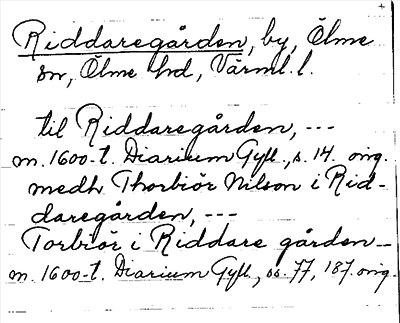 Riddaregården, by, Ölme
sn, Ölme hd, Värml. l.
til Riddaregården, ---
m. 1600-t. Diarium Gyll., s. 14. orig.
medh Thorbiör Nilson i Rid-
daregården, ---
Torbiör i Riddare gården -
m. 1600-t. Diarium Gyll., ss. 77, 187. orig.